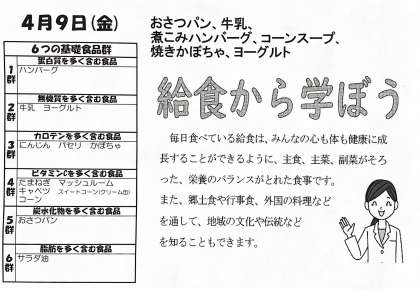 4月9日(金)
おさつパン、牛乳、
煮こみハンバーグ、コーンスープ、
焼きかぼちゃ、ヨーグルト
6つの基礎食品群
1群
蛋白質を多く含む食品
ハンバーグ
2群
無機質を多く含む食品
牛乳 ヨーグルト
3群
カロテンを多く含む食品
にんじん パセリ かぼちゃ
4群
ビタミンCを多く含む食品
たまねぎ マッシュルーム
キャベツ スイートコーン(クリーム缶)
コーン
5群
炭水化物を多く含む食品
おさつパン
6群
脂肪を多く含む食品
サラダ油
給食から学ぼう
毎日食べている給食は、みんなの心も体も健康に成
長することができるように、主食、主菜、副菜がそろ
った、栄養のバランスがとれた食事です。
また、郷土食や行事食、外国の料理など
を通して、地域の文化や伝統など
を知ることもできます。